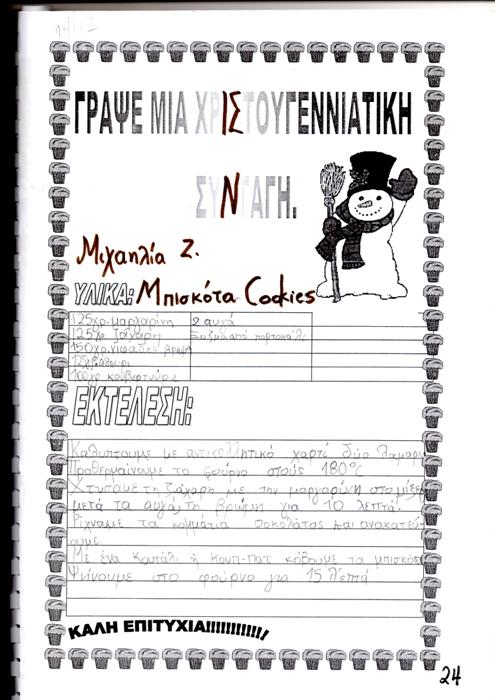 ΓΡΑΨΕ ΜΙΑ ΧΡΙΣΤΟΥΓΕΝΝΙΑΤΙΚΗ
ΣΥΝΤΑΓΗ.
Μιχαηλία Ζ.
ΥΛΙΚΑ: Μπισκότα Cookies
125γρ. μαργαρίνη 2 αυγά
125γρ ζάχαρη ξυσμα από πορτοκάλι
150γρ. νιφάδες βρώμη
100γρ κουβερτούρα
ΕΚΤΕΛΕΣΗ:
Καλύπτουμε με αντικολλητικό χαρτί δύο λαμαρι
Προθερμαίνουμε το φούρνο στους 180°c
Χτυπάμε τη ζάχαρη με την μαργαρίνη στο μίξερ
μετά τα αυγά, τη βρώμη για 10 λεπτά.
Ρίχνουμε τα κομμάτια σοκολάτας και ανακατεύ
ουμε.
Με ένα κουτάλι ή κουπ-πατ κόβουμε τα μπισκότα
Ψήνουμε στο φούρνο για 15 λεπτά
ΚΑΛΗ ΕΠΙΤΥΧΙΑ!!!!!!!!!!!!
24